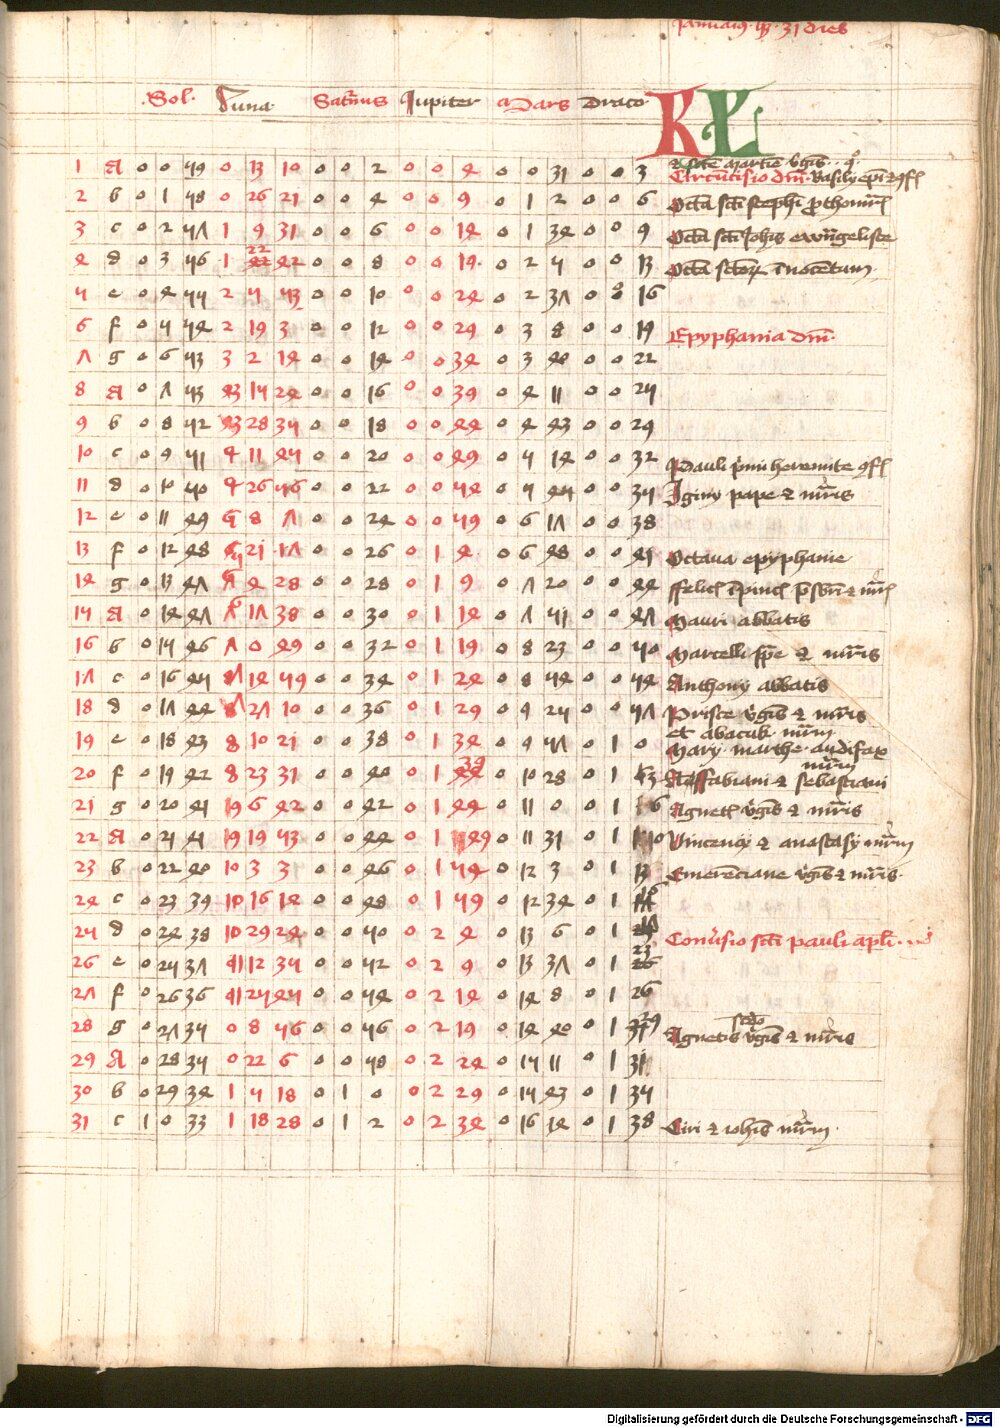 Januarius hz 31 dies
Sol Luna Saturnus Jupiter Mars Draco KL
& sctē martie v̄gīs
1 A 0 0 59 0 13 10 0 0 2 0 0 4 0 0 31 0 0 3 Circūcisio dm̄ Basily epī & 9f
2 b 0 1 58 0 26 21 0 0 4 0 0 9 0 1 2 0 0 6 Octā scti stephi prothom̄r
3 c 0 2 57 1 9 31 0 0 6 0 0 14 0 1 34 0 0 9 Octā scti Johīs ewāgeliste
4 d 0 3 56 1 22 42 0 0 8 0 0 19 0 2 5 0 0 13 Octā sctorꝝ īnocētum
5 e 0 4 55 2 5 53 0 0 10 0 0 24 0 2 37 0 0 16
6 f 0 5 54 2 19 3 0 0 12 0 0 29 0 3 8 0 0 19 Epyphania dm̄
7 g 0 6 53 3 2 14 0 0 14 0 0 34 0 3 40 0 0 22
8 A 0 7 53 3 15 24 0 0 16 0 0 39 0 4 11 0 0 25
9 b 0 8 52 3 28 35 0 0 18 0 0 44 0 4 43 0 0 29
10 c 0 9 51 4 11 45 0 0 20 0 0 49 0 5 14 0 0 32 Pauli p̄mi heremite 9f
11 d 0 10 50 4 26 56 0 0 22 0 0 54 0 5 45 0 0 35 Iginy pape & m̄ris
12 e 0 11 49 5 8 7 0 0 24 0 0 59 0 6 17 0 0 38
13 f 0 12 48 5 21 17 0 0 26 0 1 4 0 6 48 0 0 41 Octaua epyphanie
14 g 0 13 47 6 4 28 0 0 28 0 1 9 0 7 20 0 0 44 ffelicis ī pincis
15 A 0 14 47 6 17 38 0 0 30 0 1 14 0 7 51 0 0 47 Mauri abbatis
16 b 0 15 46 7 0 49 0 0 32 0 1 19 0 8 23 0 0 50 Marcelli ppe & m̄ris
17 c 0 16 45 7 14 59 0 0 34 0 1 24 0 8 54 0 0 54 Anthony abbatis
18 d 0 17 44 7 27 10 0 0 36 0 1 29 0 9 25 0 0 57 Prisce v̄gīs & m̄ris
et abacuk m̄rm
19 e 0 18 43 8 10 21 0 0 38 0 1 34 0 9 57 0 1 0 Mary marthe audifax
m̄rm
20 f 0 19 42 8 23 31 0 0 40 0 1 39 0 10 28 0 1 3 ffabiani & sebastiani
21 g 0 20 41 9 6 42 0 0 42 0 1 44 0 11 0 0 1 6 Agnetis v̄gīs & m̄ris
22 A 0 21 41 9 19 53 0 0 44 0 1 49 0 11 31 0 1 10 Vincency & anastasy m̄rm
23 b 0 22 40 10 3 3 0 0 46 0 1 54 0 12 3 0 1 13 Emerēciane v̄gīs & m̄ris
24 c 0 23 39 10 16 14 0 0 48 0 1 59 0 12 34 0 1
25 d 0 24 38 10 29 24 0 0 50 0 2 4 0 13 6 0 1 Conv̄sio scti pauli apli
26 e 0 25 37 11 12 35 0 0 52 0 2 9 0 13 37 0 1 23
27 f 0 26 36 11 25 45 0 0 54 0 2 14 0 14 8 0 1 26
28 g 0 27 35 0 8 56 0 0 56 0 2 19 0 14 40 0 1 29 Agnetis scd̄o v̄gīs & m̄ris
29 A 0 28 35 0 22 6 0 0 58 0 2 24 0 15 11 0 1 31
30 b 0 29 34 1 5 18 0 1 0 0 2 29 0 15 43 0 1 35
31 c 1 0 33 1 18 28 0 1 2 0 2 34 0 16 14 0 1 38 Ciri & iohīs m̄rm
Digitalisierung gefördert durch die Deutsche Forschungsgemeinschaft - DFG